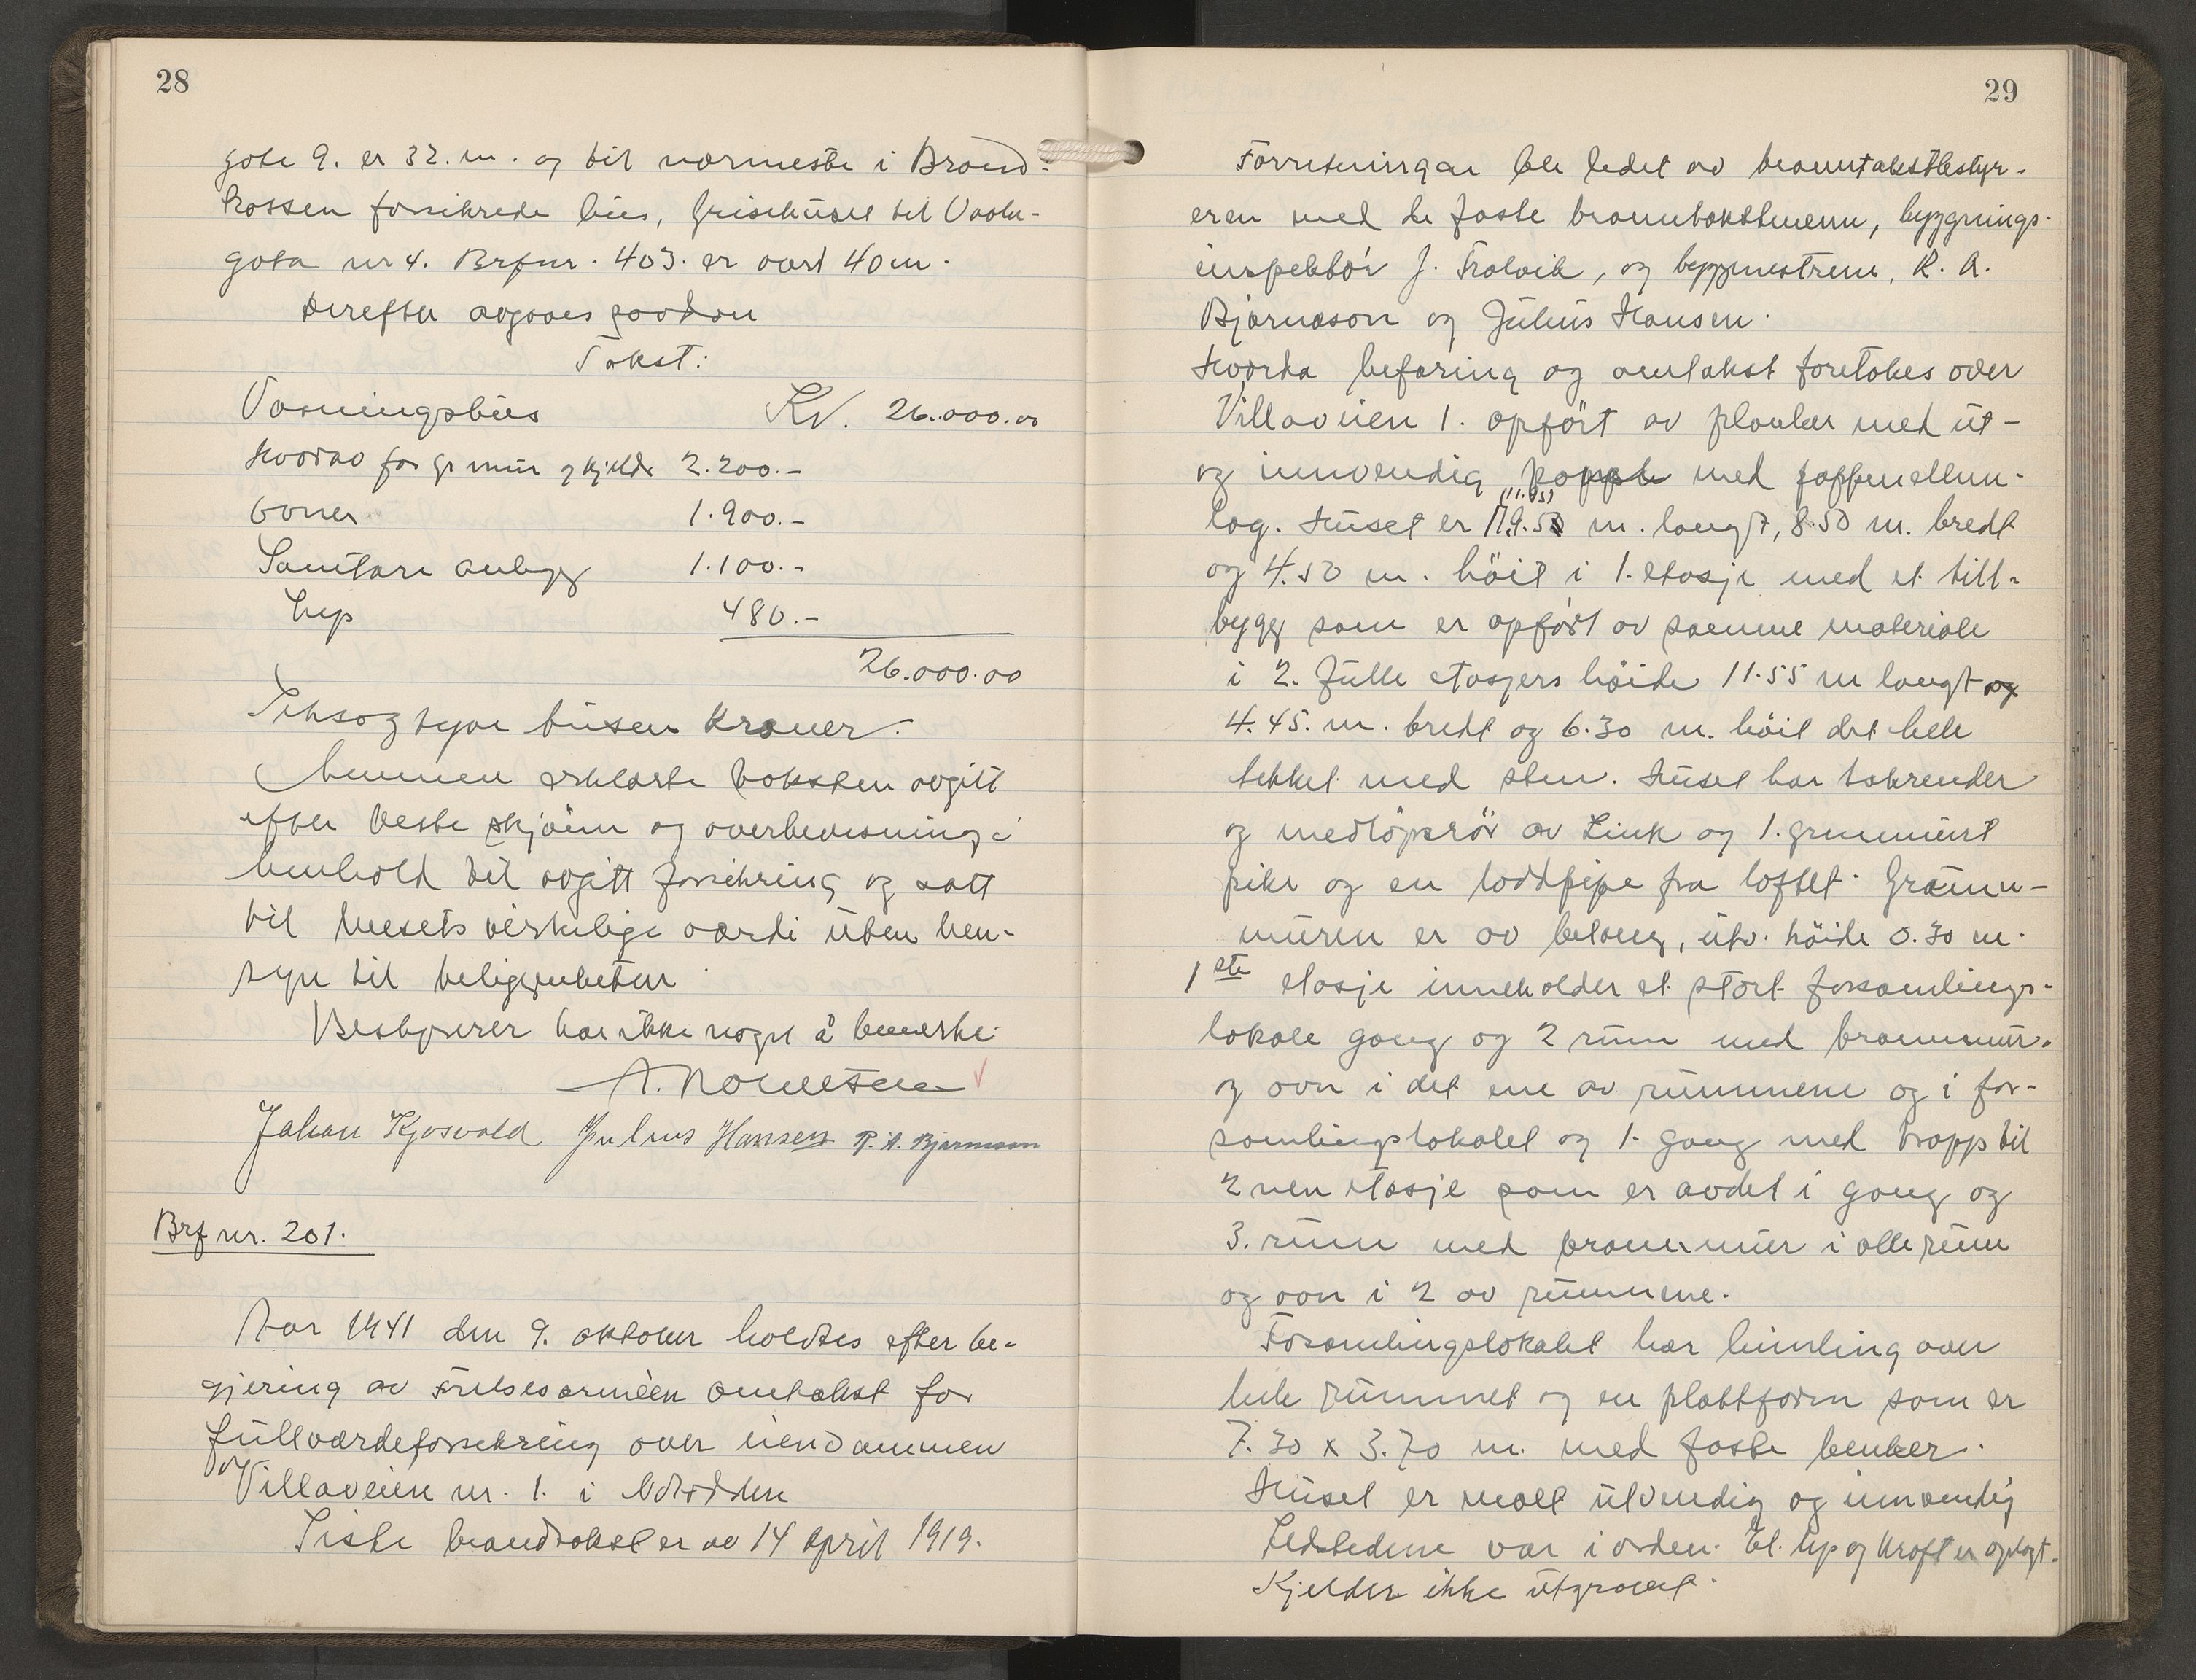 28
gate 9. er 32. m. og til nærmeste i Brand-
kassen forsikrede hus, Grisehuset til Vaala-
gata nr 4. Brfnr. 403. er avst 40 m.
Derefter avgaves saadan
Takst:
Vaaningshus Kr. 26.000.00
Hvorav for gr mur og kjelder 2.200.-
ovner 1.900.-
Sanitære anlegg 1.100.-
Lys 480.-
26.000.00
Seksogtyve tusen Kroner.
Mennen erklærte taksten avgitt
efter beste skjønn og overbevisning i
henhold til avgitt forsikring og satt
til husets virkelige værdi uten hen-
syn til beliggenheten
Bestyrer har ikke noget å bemerke.
A. Nomestee
Johan Kjosvold Julius Hansen R. A. Bjarnason
Brf nr. 201.
Aar 1941 den 9. oktober holdtes efter be-
gjering av Frelsesarméen omtakst for
fullværdeforsikring over eiendommen
Villaveien nr. 1. i Notodden
Siste brandtakst er av 14 April 1919.
29
Forretningen ble ledet av branntakstbestyr-
eren med de faste branntakstmenn, bygnings-
inspektör J. Trolvik, og byggmestrene, R. A.
Bjarnason og Julius Hansen.
Hvorda befaring og omtakst foretokes over
Villaveien 1. opfört av planker med ut-
og innvendig papp med pappmellum-
lag. Huset er (11.95) 19.50 m. langt, 8.50 m. bredt
og 4.50 m. höit i 1. etasje med et till-
bygg som er opfört av samme materiale
i 2. fulle etasjers höide 11.55 m langt og
4.45. m. bredt og 6.30 m. höit det hele
tekket med sten. Huset har takrender
og nedlöpsrör av Sink og 1. grunnmurt
pike og en loddpipe fra loftet. Grunn-
muren er av betong, utv. höide 0.30 m.
1ste etasje inneholder et stort forsamlings-
lokale gang og 2 rum med brannmur.
og ovn i det ene av rummene og i for-
samlingslokalet og 1. gang med trapp til
2nen etasje som er avdelt i gang og
3. rum med brannmur i alle rum
og ovn i 2 av rummene.
Fosamlingslokalet har himling over
hele rummet og en plattform som er
7.30 x 3.70 m. med faste benker.
Huset er malt utvendig og innvendig
Ildstedene var i orden. El. lys og kraft er oplagt.
Kjelder ikke utgravet.